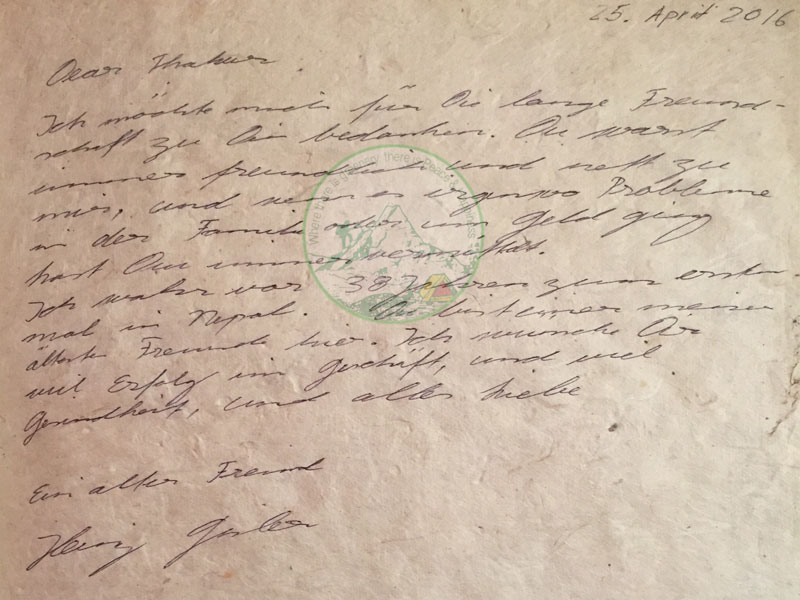 25. April 2016
Dear Thakur
Ich möchte mich für Die lange Freund-
schaft zu Dir bedanken. Du warst
immer freundlich und nett zu
mir, und wenn es irgendwo Probleme
in der Familie oder um Geld ging
hast Du immer vermittelt.
Ich wahr vor 38 Jahren zum ersten-
mal in Nepal. Du bist einer meiner
ältesten Freunde hier. Ich wünsche Dir
viel Erfolg im Geschäft, und viel
Gesundheit, und alles liebe
Ein alter Freund